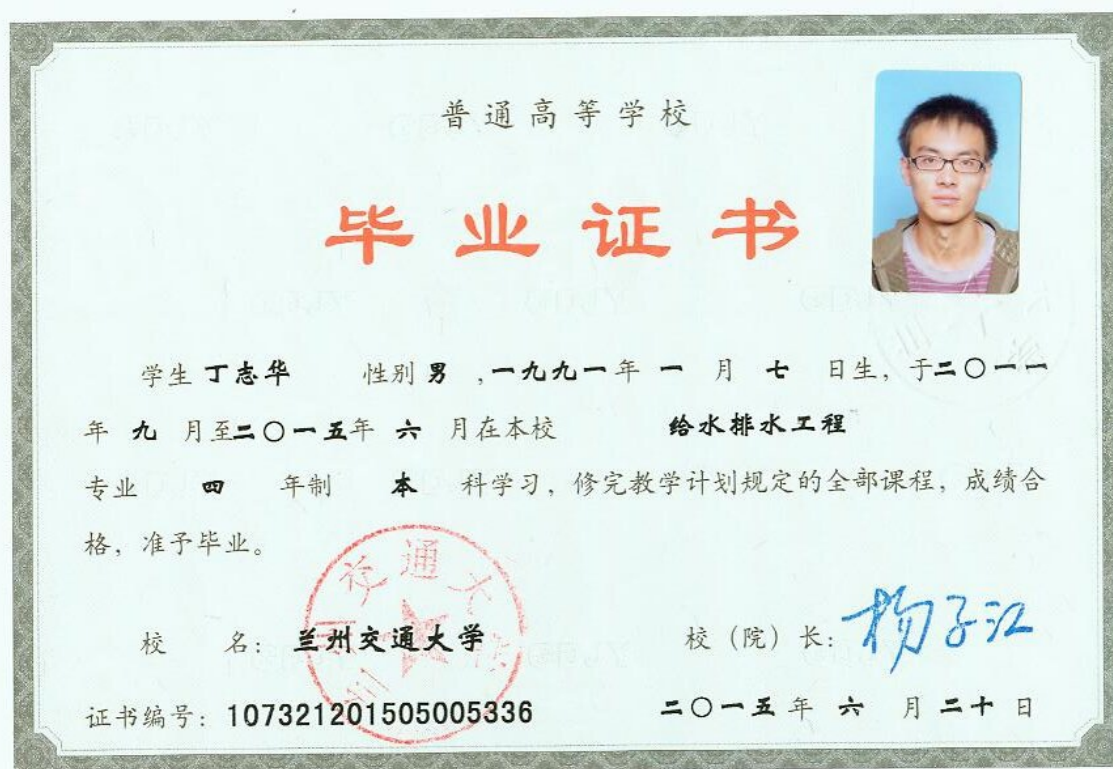 普通高等学校
毕业证书
学生 丁志华 性别 男 ,一九九一年 一 月 七 日生, 于二〇一一
年 九 月至二〇一五年 六 月在本校 给水排水工程
专业 四 年制 本 科学习, 修完教学计划规定的全部课程, 成绩合
格, 准予毕业。
兰州交通大学
校 名: 兰州交通大学 校 (院) 长: 杨子江
证书编号: 107321201505005336 二〇一五 年 六 月 二十 日